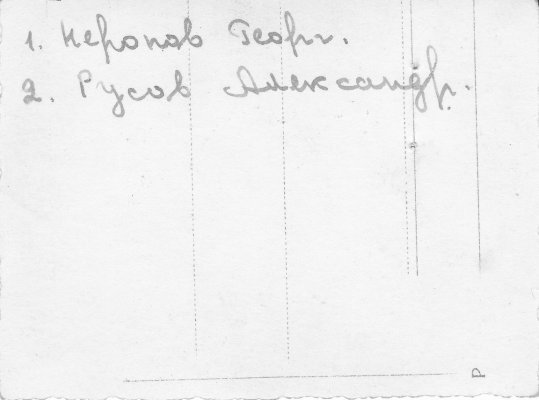 1. Неропов Георг.
2. Русов Александр.
P